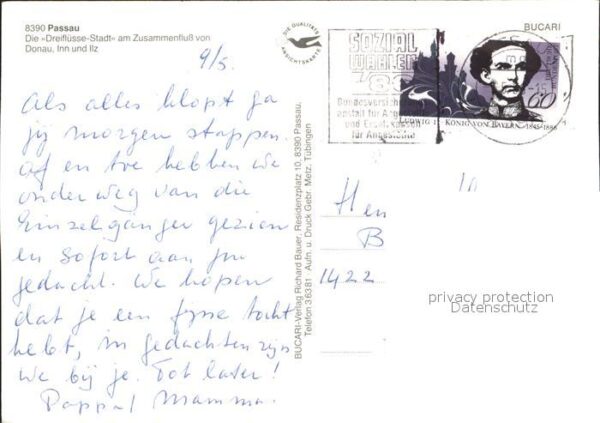 8390 Passau
Die »Dreiflüsse-Stadt« am Zusammenfluß von
Donau, Inn und Ilz
DIE QUALITÄTS
ANSICHTSKARTE
BUCARI
SOZIAL
WAHLEN
'86
Bundesversicherungs-
anstalt für Angestellte
und Ersatzkassen
für Angestellte
LUDWIG II. KÖNIG VON BAYERN 1845-1886
60
9/5.
Als alles klopt ga
jij morgen stappen.
Af en toe hebben we
onderweg van die
Einzelgänger gezien
en sofort aan jou
gedacht. We hopen
dat je een fijne tocht
hebt, in gedachten zijn
we bij je. Tot later!
Pappa/Mamma.
BUCARI-Verlag Richard Bauer, Residenzplatz 10, 8390 Passau,
Telefon 36381 Aufn. u. Druck Gebr. Metz, Tübingen
Hen
B
1422
privacy protection
Datenschutz